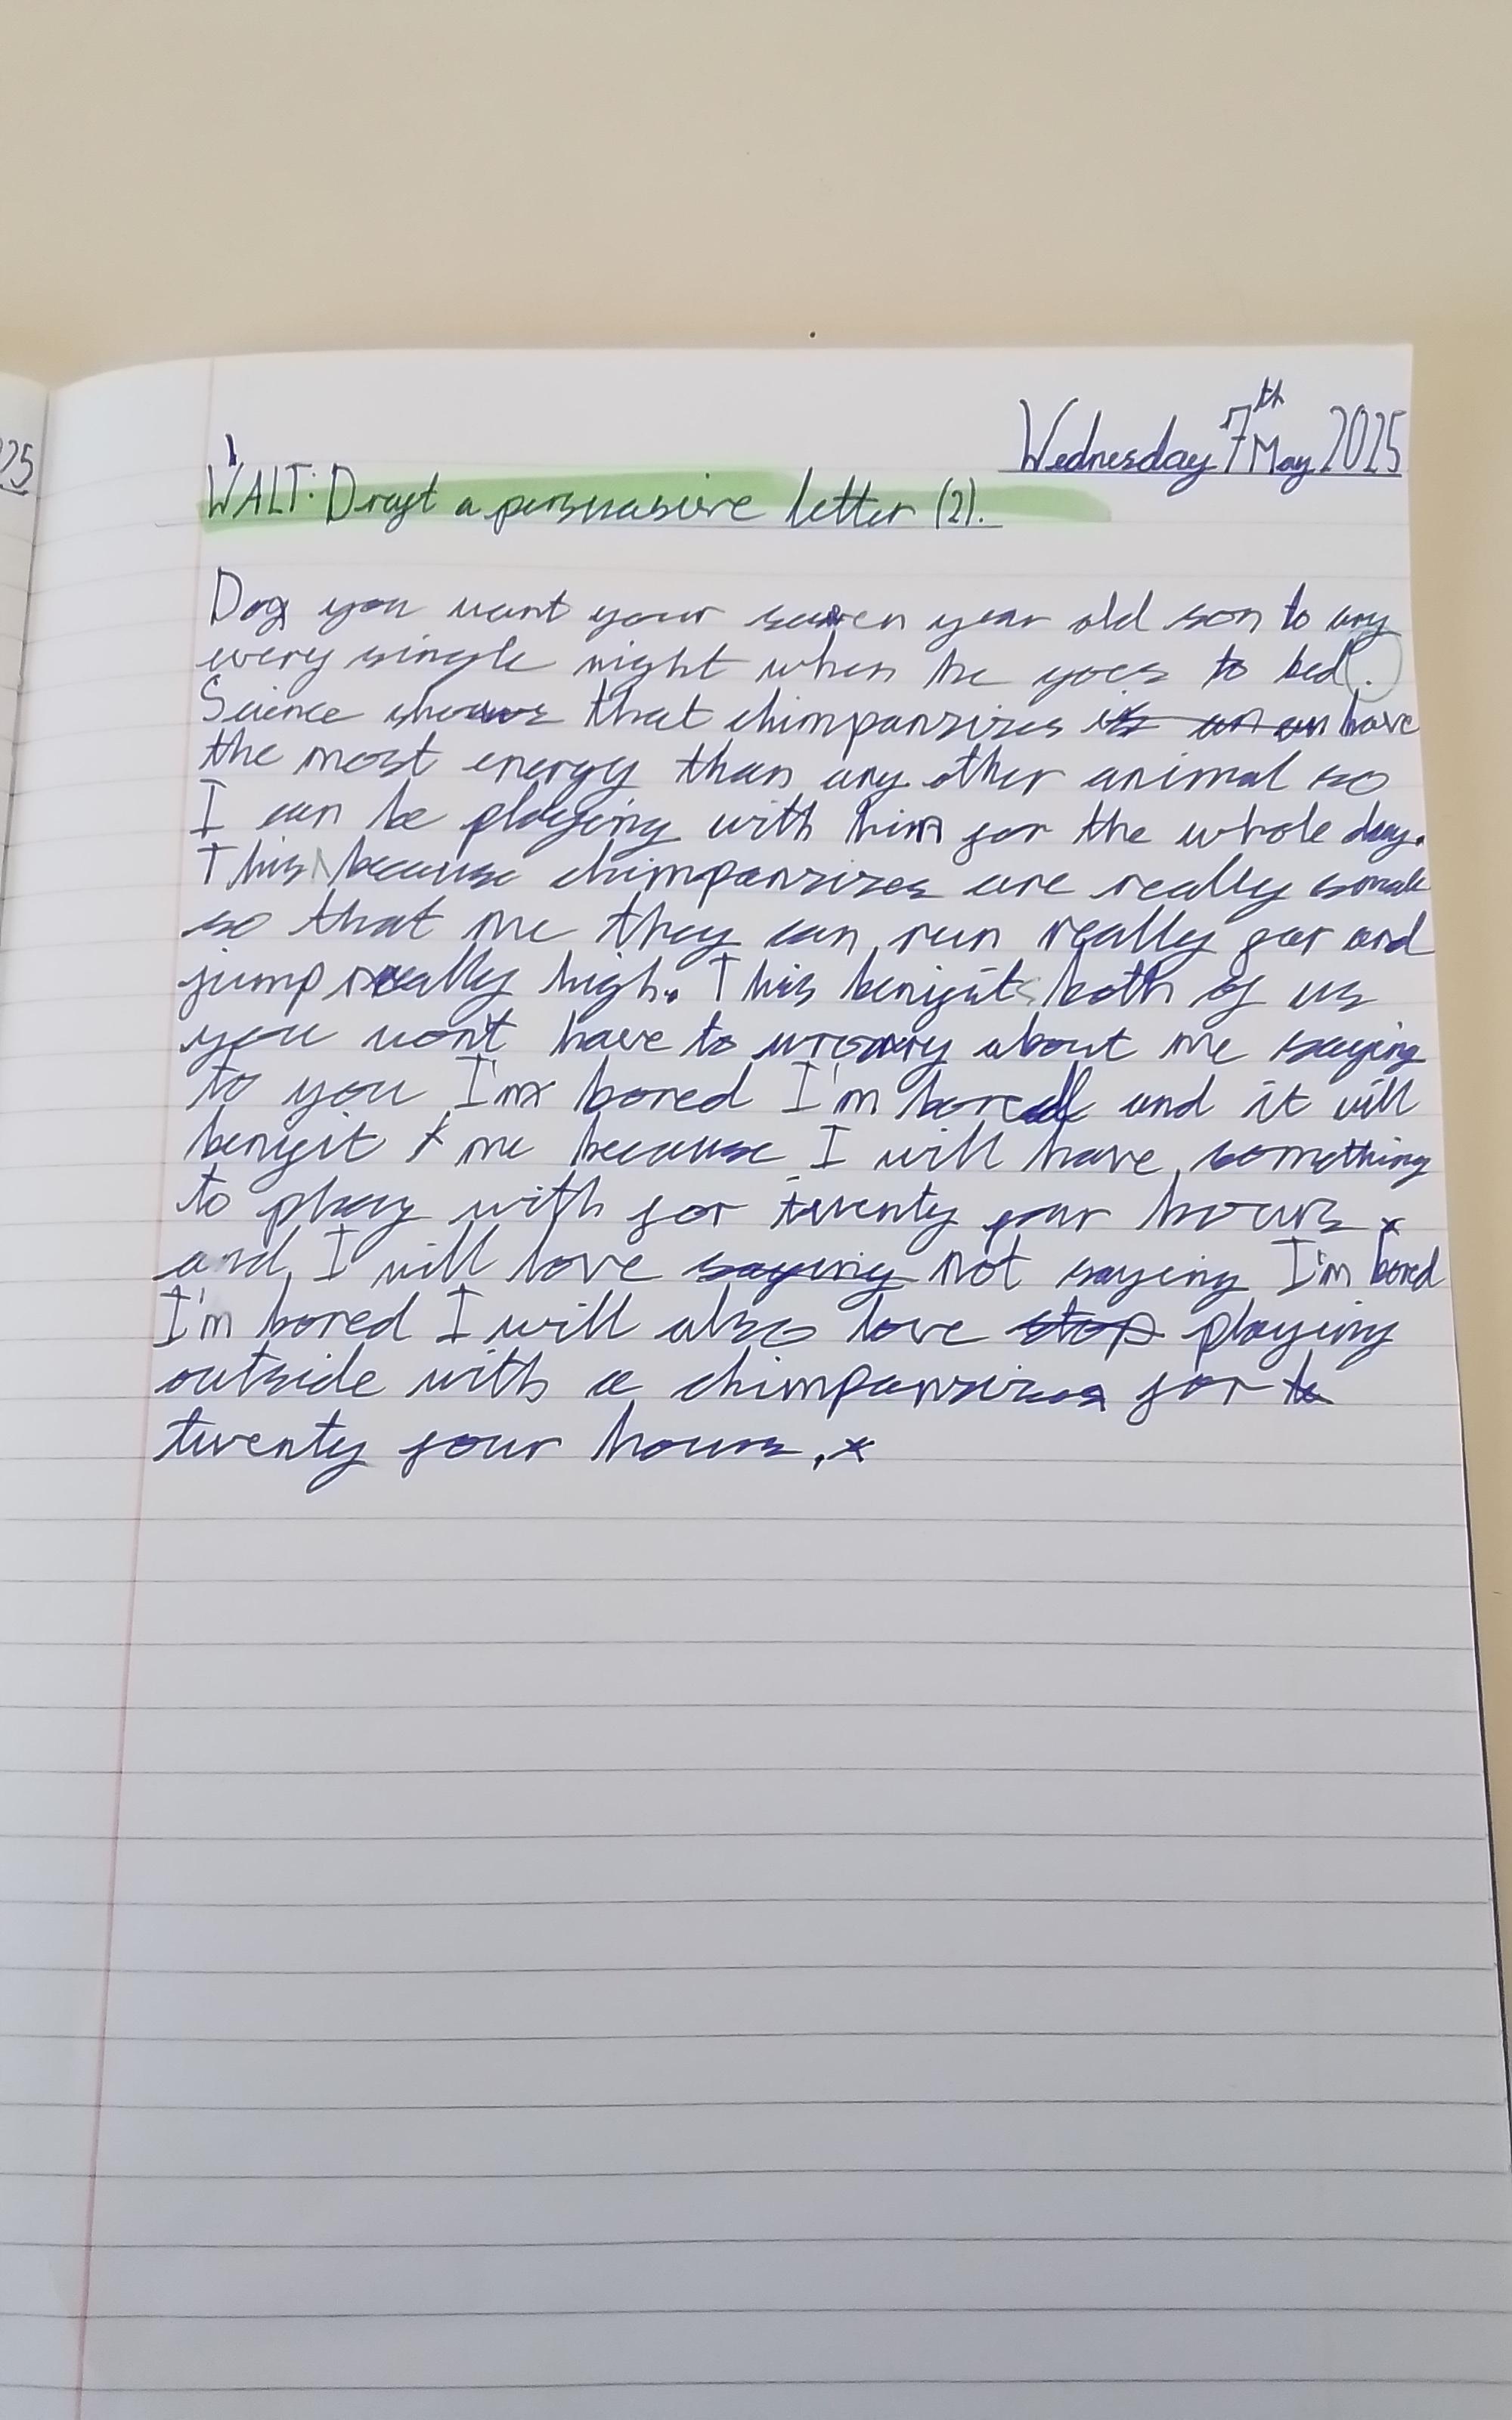 25
Wednesday 7th May 2025
WALT: Draft a persuasive letter (2).
Do you want your seven year old son to cry
every single night when he goes to bed.
Science shows that chimpanzizes have
the most energy than any other animal so
I can be playing with him for the whole day.
This because chimpanzizes are really small
so that me they can run really far and
jump really high. This benifits both of us
you won't have to worry about me saying
to you I'm bored I'm bored and it will
benifit me because I will have something
to play with for twenty four hours
and I will love not saying I'm bored
I'm bored I will also love playing
outside with a chimpanzizes for
twenty four hours.